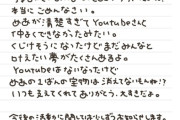 本当にごめんなさい。
めめが清楚すぎてYoutubeさんと
仲よくできなかたみたい。
くじけそうになったけどまだみんなと
叶えたい夢がたくさんあるよ。
Youtubeはないなったけど
めめのえぱんの宝物は消えてないもんね!?
いつも支えてくれてありがとう。大すきだよ。
今後の活動に関してはしじずつお知らせします。